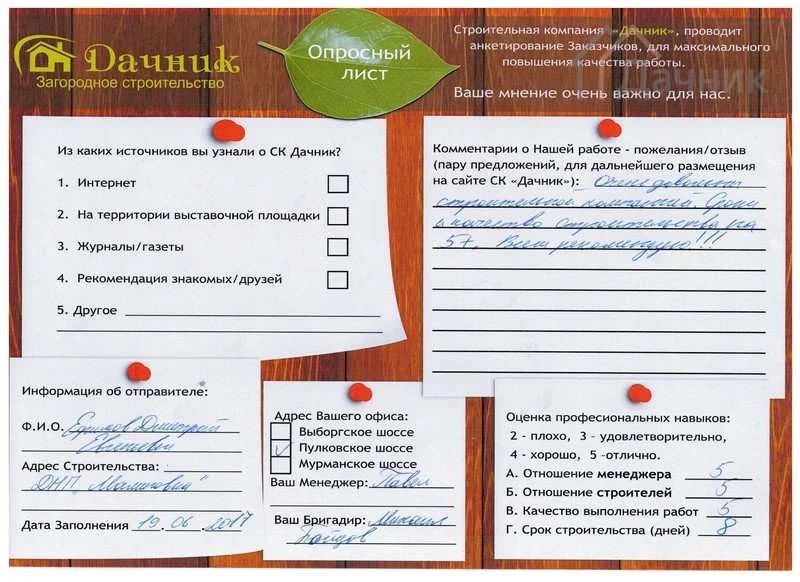 Дачник
Загородное строительство
Опросный
лист
Строительная компания «Дачник», проводит
анкетирование Заказчиков, для максимального
повышения качества работы.
Ваше мнение очень важно для нас.
Дачник
Из каких источников вы узнали о СК Дачник?
1. Интернет
2. На территории выставочной площадки
3. Журналы/газеты
4. Рекомендация знакомых/друзей
5. Другое
Комментарии о Нашей работе - пожелания/отзыв
(пару предложений, для дальнейшего размещения
на сайте СК «Дачник»): Очень довольны
строительной компанией. Сроки
и качество строительства на
5+. Всем рекомендую!!!
Информация об отправителе:
Ф.И.О. Ефимов Дмитрий
Евгеньевич
Адрес Строительства:
ДНП
Дата Заполнения 19.06.2017
Адрес Вашего офиса:
Выборгское шоссе
Пулковское шоссе
Мурманское шоссе
Ваш Менеджер: Павел
Ваш Бригадир: Михаил
Оценка професиональных навыков:
2 - плохо, 3 - удовлетворительно,
4 - хорошо, 5 -отлично.
А. Отношение менеджера 5
Б. Отношение строителей 5
В. Качество выполнения работ 5
Г. Срок строительства (дней) 8